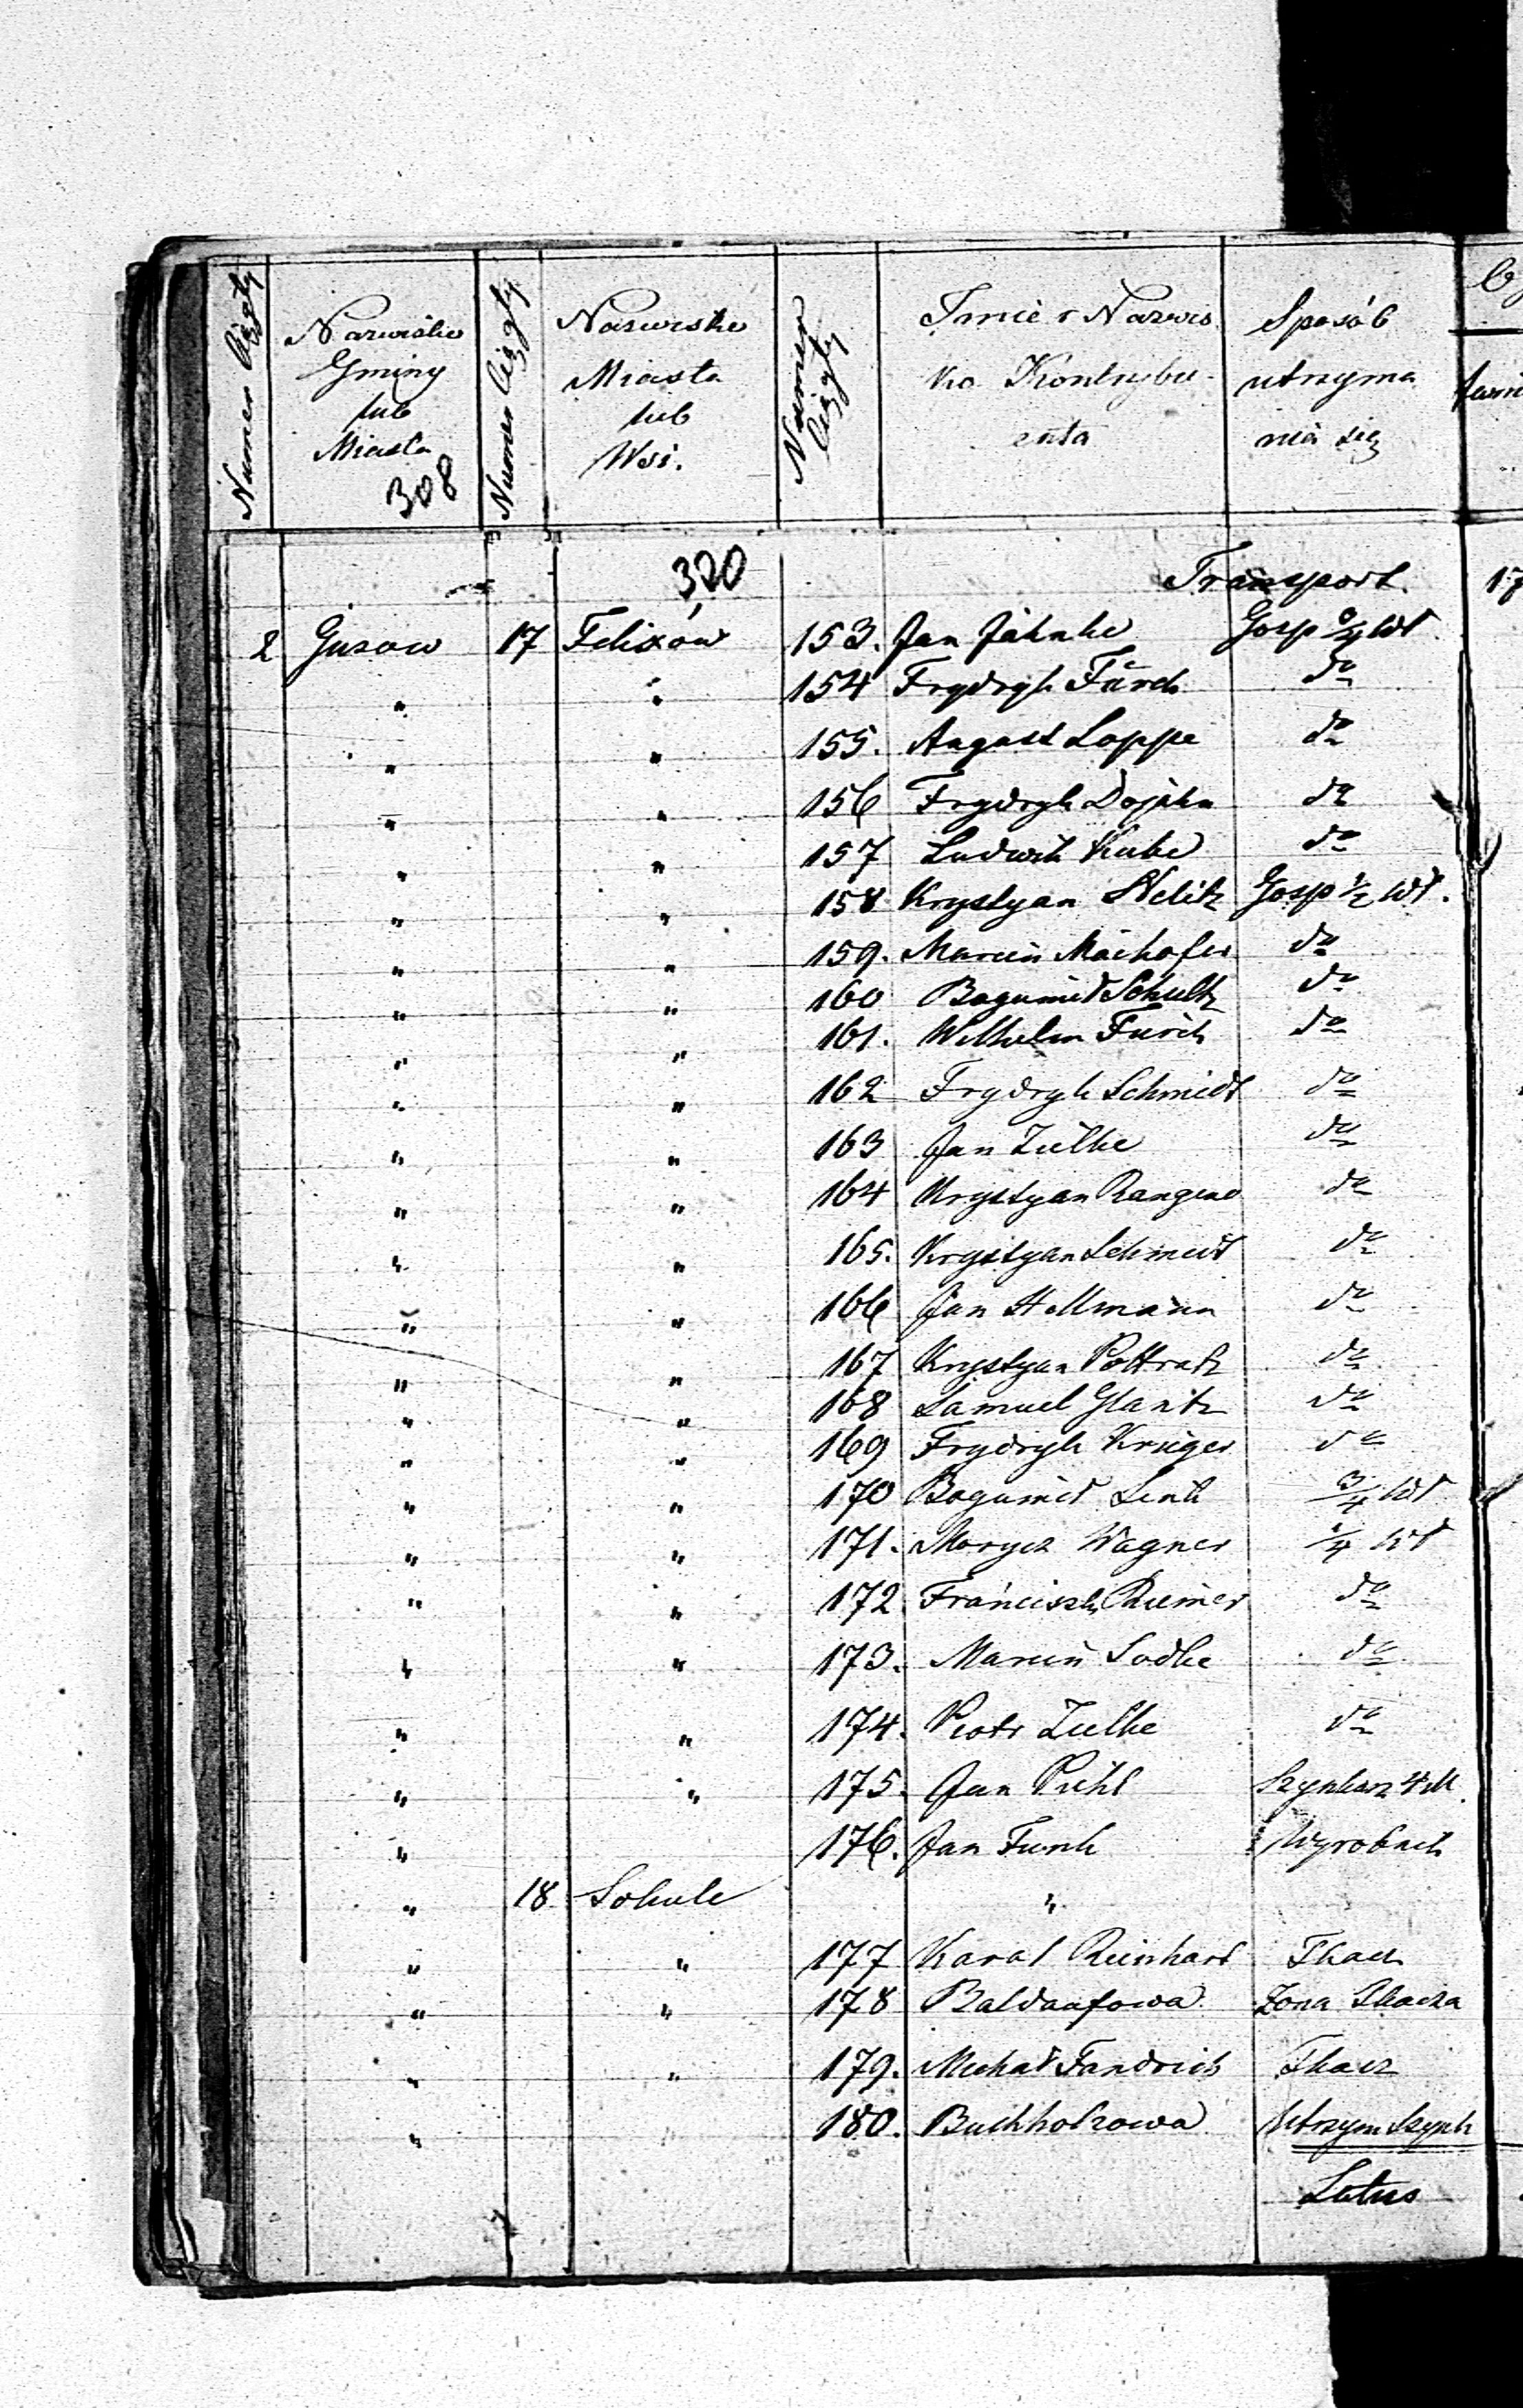 Numer Ciągły
Nazwisko Gminy lub Miasta
308
Numer Ciągły
Nazwisko Miasta lub Wsi.
Numer Ciągły
Imie i Nazwisko Kontrybuenta
Sposób utrzymania się
320
Transport
2 Guzow 17 Felixów 153. Jan Jähnke Gosp 3/4 Wł
" " 154 Frydrych Fürch do
" " 155. August Loppe do
" " 156 Frydrych do
" " 157 Ludwik Kube do
" " 158 Krystyan Gosp 1/2 Wł.
" " 159. Marcin Maihofer do
" " 160 Bogumił Schultz do
" " 161. Wilhelm Fürch do
" " 162 Frydrych Schmidt do
" " 163 Jan Zülke do
" " 164 Krystyan Rangeno do
" " 165. Krystyan Schmidt do
" " 166 Jan Hellmann do
" " 167 Krystyan Pottratz do
" " 168 Samuel Glantz do
" " 169 Frydrych Krüger do
" " 170 Bogumił Lenk 3/4 Wł
" " 171. Morycz Wagner 1/4 Wł
" " 172. Franciszk Riemer do
" " 173. Marcin Sodke do
" " 174. Piotr Zielke do
" " 175. Jan Piehl Szynkarz 4 M.
" 176. Jan Funk Wyrobnik
" 18 Sokule "
" " 177 Karol Reinhard Tkacz
" " 178 Baldaufowa Zona Tkacza
" " 179. Michał Fandrich Tkacz
" 180. Buchholzowa Utrzym Szynk
Latus